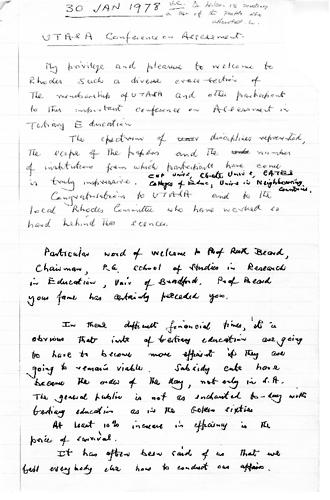 30 JAN 1978
UTARA Conference on Assessment.
My privilege and pleasure to welcome to
Rhodes such a diverse cross-section of
the membership of UTARA and other participants
to this important conference on Assessment in
Tertiary Education
The spectrum of disciplines represented,
the scope of the papers and the number
of institutions from which participants have come
is truly impressive.
Colleges of Educ, Univs in Neighbouring countries.
Congratulations to UTARA and to the
local Rhodes Committee who have worked so
hard behind the scenes.
Particular word of welcome to Prof Ruth Beard,
Chairman, P.G. School of Studies in Research
in Education, Univ of Bradford. Prof Beard
your fame has certainly preceded you.
In these difficult financial times, it is
obvious that insts of tertiary education are going
to have to become more efficient if they are
going to remain viable. Subsidy cuts have
become the order of the day, not only in S.A.
The general public is not as enchanted to-day with
tertiary education as in the Golden sixties
At least 10% increase in efficiency is the
price of survival.
It has often been said of us that we
tell everybody else how to conduct our affairs.